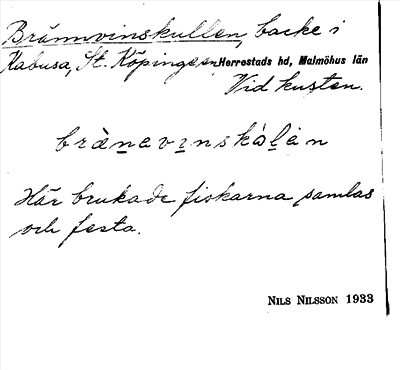 Brännvinskullen, backe i
Kabusa, St. Köpinge sn, Herrestads hd, Malmöhus län
Vid kusten.
brànavinskàlan
Här brukade fiskarna samlas
och festa.
NILS NILSSON 1933